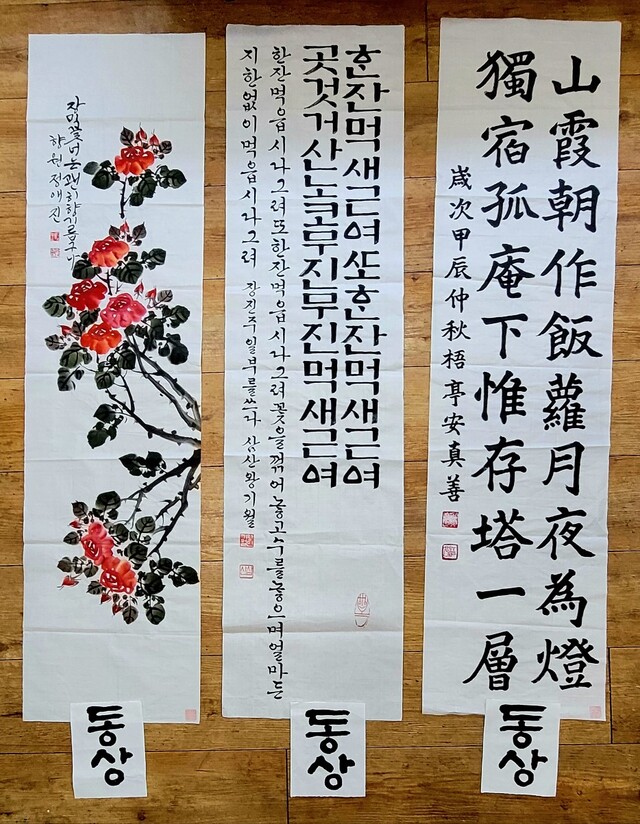 장미꽃너는괜히향기를주
향원정애진
ᄒᆞᆫ잔먹새근여ᄯᅩᄒᆞᆫ잔먹새근여
곳것거산노코무진무진먹새근여
한잔먹읍시다그려또한잔먹읍시다그려꽃을꺾어놓고수를놓으며얼마든
지한없이먹읍시다그려 장진주일부를쓰다 삼산왕기월
山霞朝作飯蘿月夜為燈
獨宿孤庵下惟存塔一層
歲次甲辰仲秋梧亭安真善
동상
동상
동상